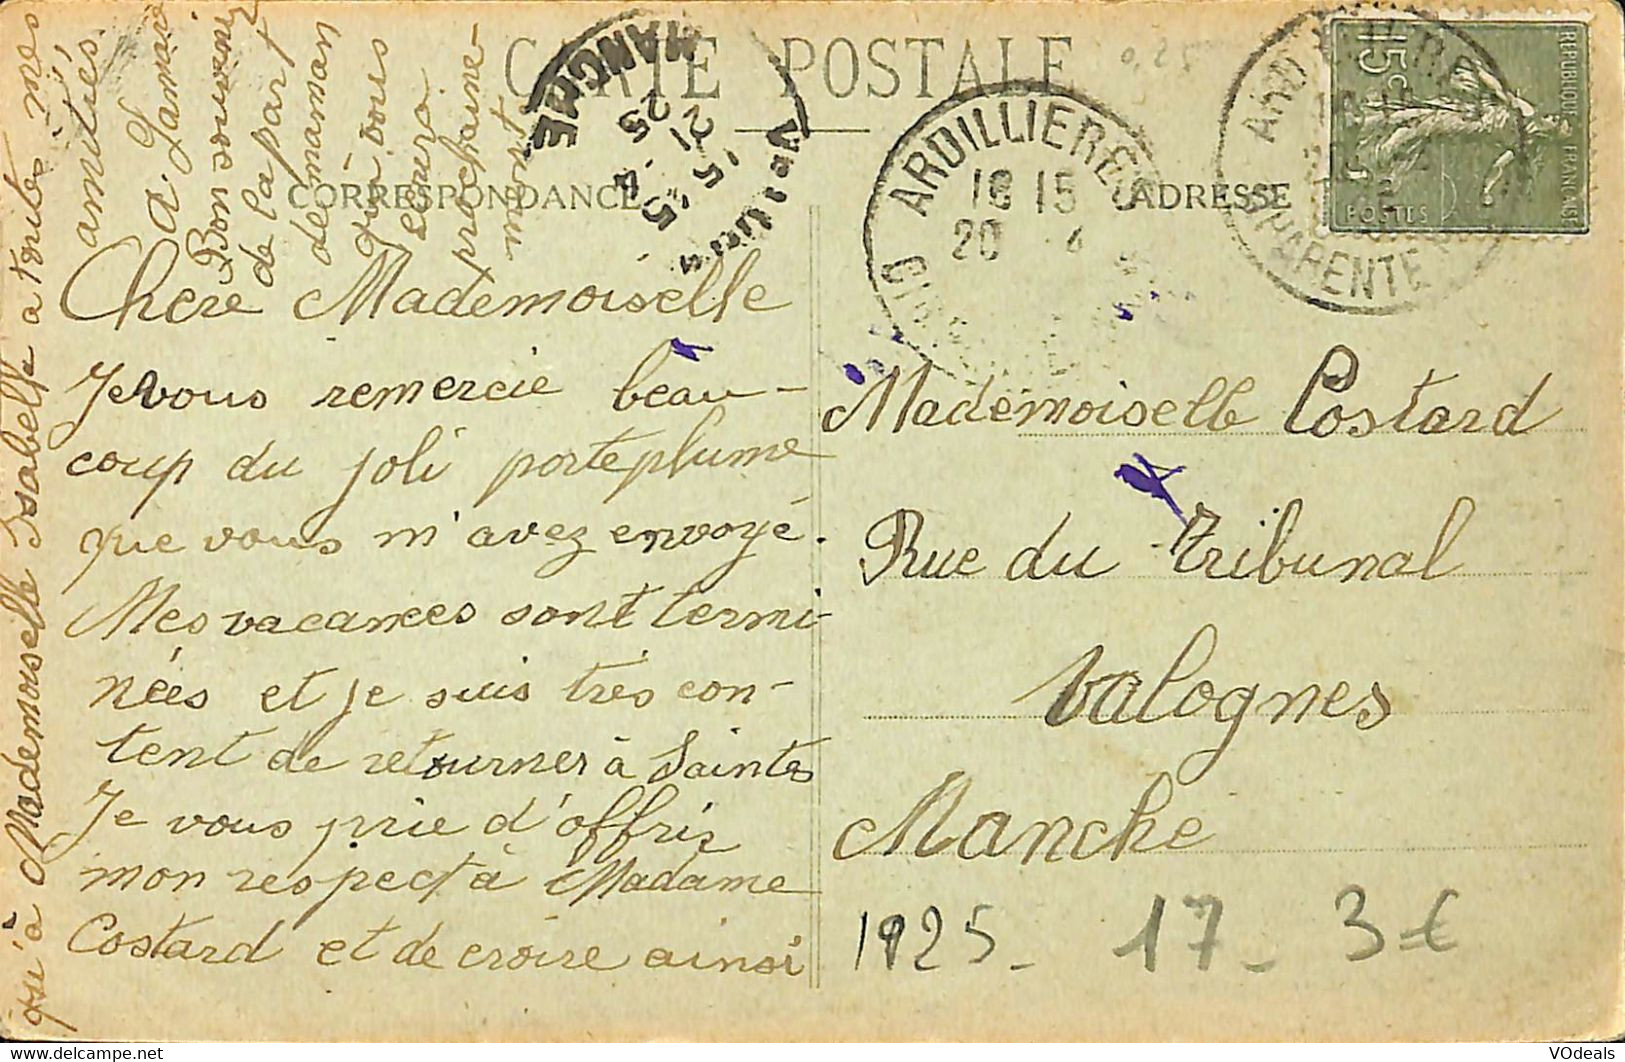 CARTE POSTALE
CORRESPONDANCE
ADRESSE
Chère Mademoiselle
Je vous remercie beau-
coup du joli porteplume
que vous m'avez envoyé.
Mes vacances sont termi-
nées et je suis très con-
tent de retourner à Saintes
Je vous prie d'offrir
mon respect à Madame
Costard et de croire ainsi
qu'à Mademoiselle Isabelle a toutes mes
amitiés.
Bon souvenir
de la part
de maman
qui vous
écrira
prochaine-
Mademoiselle Costard
Rue du Tribunal
Valognes
Manche
1925 - 17 - 3€
ARDILLIERES
18 15
20 4
MANCHE
15 15
21 - 4
25
REPUBLIQUE FRANCAISE
15c
POSTES
VOdeals